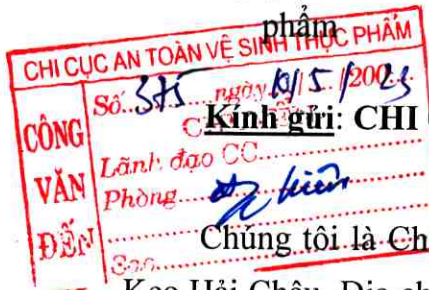 phẩm
CHI CỤC AN TOÀN VỆ SINH THỰC PHẨM
CÔNG VĂN ĐẾN
Số: 375 ngày 10/5/2023
Kính gửi: CHI
Lãnh đạo CC
Phòng
Chúng tôi là Ch
Kẹo Hải Châu. Địa ch